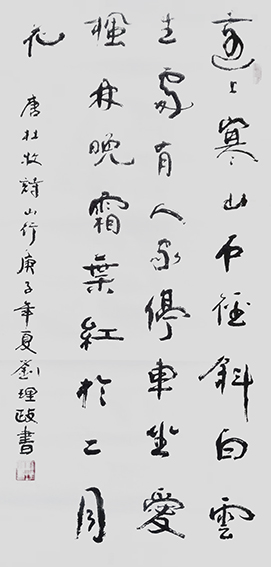 遠上寒山石徑斜白雲
生處有人家停車坐愛
楓林晚霜葉紅於二月
花
唐杜牧詩山行庚子年夏劉理政書